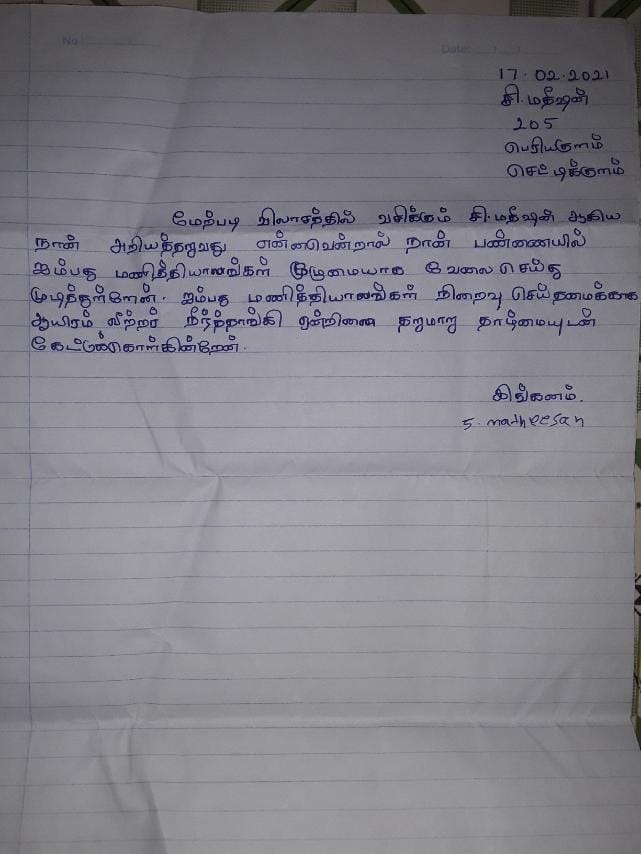 No
Date:
17.02.2021
சி.மதீஷன்
205
பெரியகுளம்
செட்டிக்குளம்
மேற்படி விலாசத்தில் வசிக்கும் சி.மதீஷன் ஆகிய
நான் அறியத்தறுவது என்னவென்றால் நான் பண்ணையில்
ஐம்பது மணித்தியாலங்கள் முழுமையாக வேலை செய்து
முடித்துள்ளேன். ஐம்பது மணித்தியாலங்கள் நிறைவு செய்தமைக்காக
ஆயிரம் லீற்றர் நீர்த்தாங்கி ஒன்றினை தறுமாறு தாழ்மையுடன்
கேட்டுக்கொள்கின்றேன்.
இங்கனம்.
S. matheesan